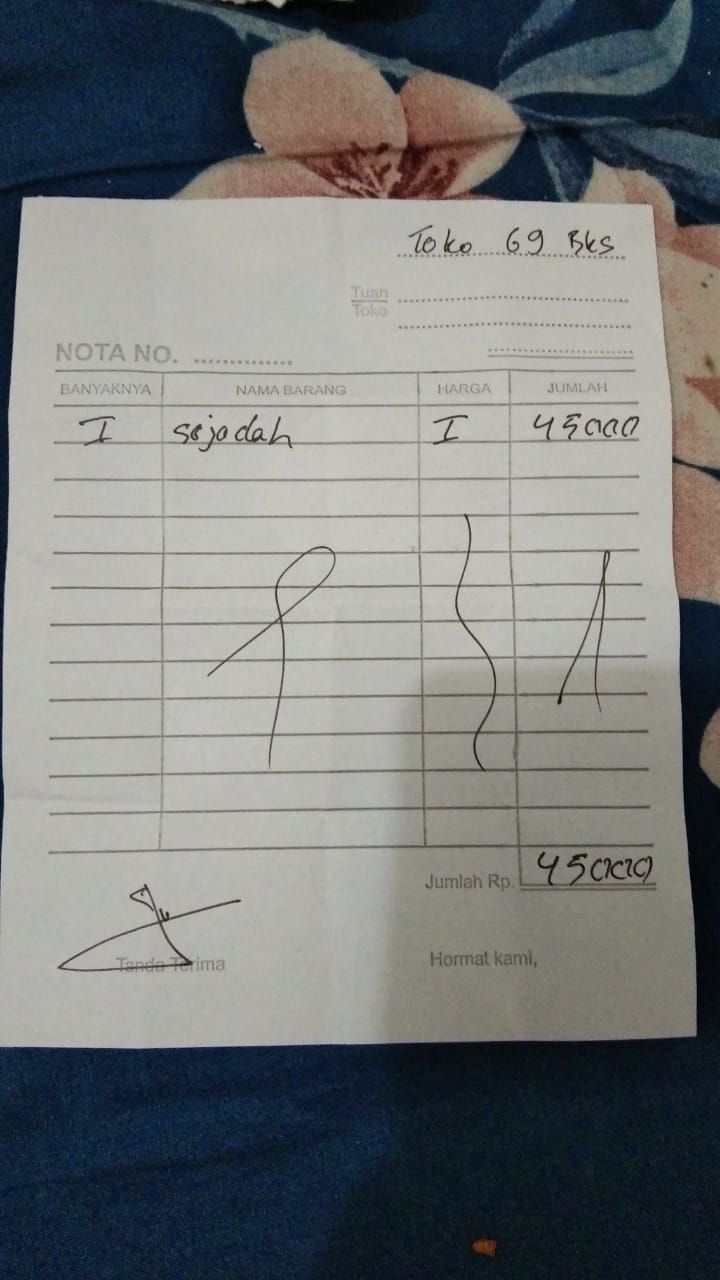 Toko 69 Bks
Tuan
Toko
NOTA NO. ................
BANYAKNYA NAMA BARANG HARGA JUMLAH
I sejadah I 45000
Jumlah Rp. 45000
Tanda Terima Hormat kami,